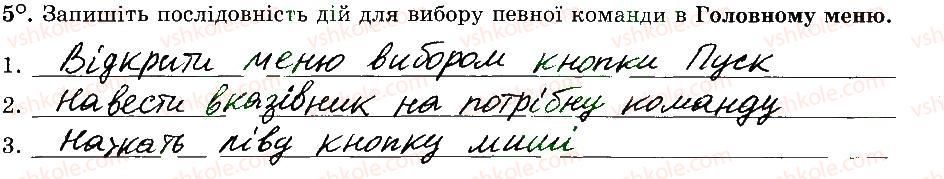 5°. Запишіть послідовність дій для вибору певної команди в Головному меню.
1. Відкрити меню вибором кнопки Пуск
2. Навести вказівник на потрібну команду
3. Наткать ліву кнопку миші